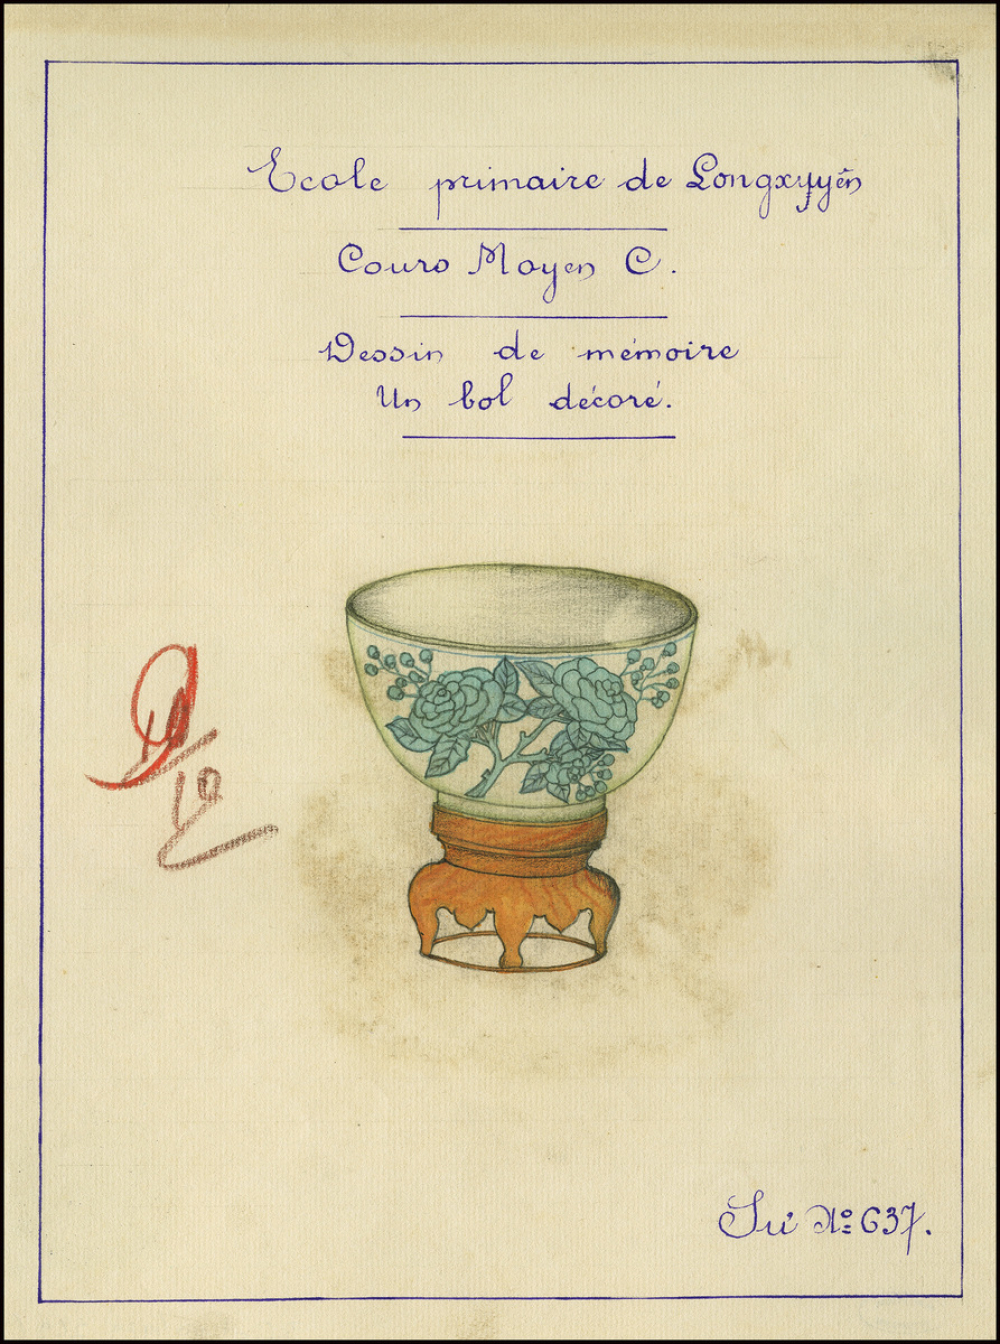 Ecole primaire de Longxuyên
Cours Moyen C.
Dessin de mémoire
Un bol décoré.
9
10
Sư No: 637.